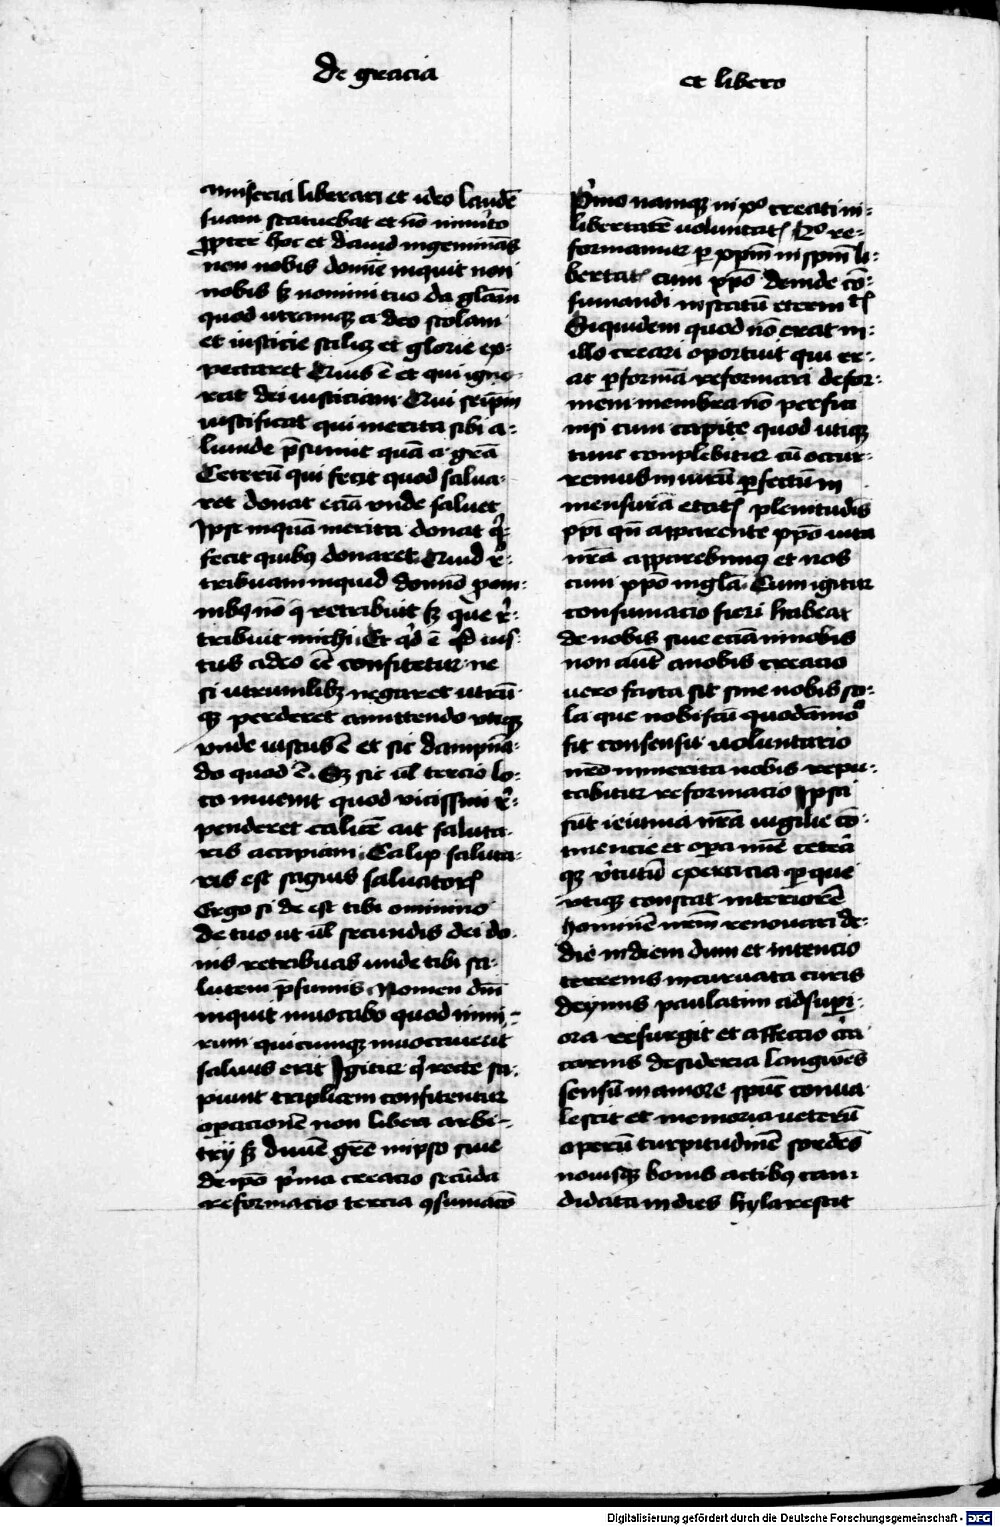 de gracia
et libero
miseria liberari et ideo laudē
suam statuebat et nō ninūto
ꝓpter hoc et dauid ingeminās
non nobis domīe inquit non
nobis sꝫ nomini tuo da gl̄am
quod utramqꝫ a deo stolam
et iusticie scilicꝫ et glorie ex-
pectaret Quis ē et qui igno-
rat dei iusticiam Qui seip̄m
iustificat qui merita sibi a-
liunde p̄sumit quā a gr̄a
Ceterū qui fecit quod salua-
ret donat eciā vnde saluet
Ipse inquā merita donat qͥ
fecit quibꝰ donaret Quid re-
tribuam inquid domīo pro om-
nibꝰ nō q̄ retribuit sꝫ que re-
tribuit michi Et qͥd ē Qd ius-
tus a deo eē confitetur ne
si utrumlibꝫ negaret utrū-
qꝫ perderet amittendo utiqꝫ
vnde iustus ē et sic dampnā-
do quod ē Sꝫ sic ul̄ tercio lo-
co inuenit quod vicissim re-
penderet calicē ait saluta-
ris accipiam Calix saluta-
ris est sāguis saluatorꝭ
Ergo si de est tibi ominino
de tuo ut ul̄ secundis dei do-
nis retribuas unde tibi sa-
lutem p̄sumis Nomen dn̄i
inquit inuocabo quod nimi-
rum quicumqꝫ inuocauerit
saluus erit Igitur qͥ recte sa-
piunt triplicem confitentur
operacionē non liberi arbi-
trij sꝫ diuīe gr̄e in ipso siue
de ip̄o pͥma creacio secūda
reformacio tercia ꝯsumacō
Pͥmo namqꝫ in xp̄o creati in
libertatē voluntatꝭ 2º re-
formamur per xp̄m in sp̄m li-
bertatꝭ cum xp̄o deinde cō-
sumandi in statū eternitꝭ
Siquidem quod nō erat in
illo creari oportuit qui er-
at per formā reformari defor-
mem membra nō perfici
nisi cum capite quod utiqꝫ
tunc complebitur cū occur-
remus in uirū perfectū in
mensurā etatꝭ plenitudīs
xp̄i qn̄ apparente xp̄o uita
nr̄a apparebimꝰ et nos
cum xp̄o in gl̄a Cum igitur
consumacio fieri habeat
de nobis siue eciā in nobis
non aut̄ a nobis creacio
uero facta sit sine nobis so-
la que nobiscū quodāmō
fit consensū uoluntario
nr̄o in merita nobis repu-
tabitur reformacio Ipsa
sūt ieiunia nr̄a uigilie cō-
tinencie et opera mīe cetera-
qꝫ vͥtutū exercicia per que
utiqꝫ constat interiorē
hominē nrm̄ renouari de
die in diem dum et intencio
terrenis incuruata curis
de ymis paulatim ad supi-
ora resurgit et affectio cͥca
carnis desideria langwēs
sensū in amore sp̄us conua-
lescit et memoria ueterū
operū turpitudinē sordēs
nouisqꝫ bonis actibꝰ can-
didata in dies hylarescit
Digitalisierung gefördert durch die Deutsche Forschungsgemeinschaft - DFG